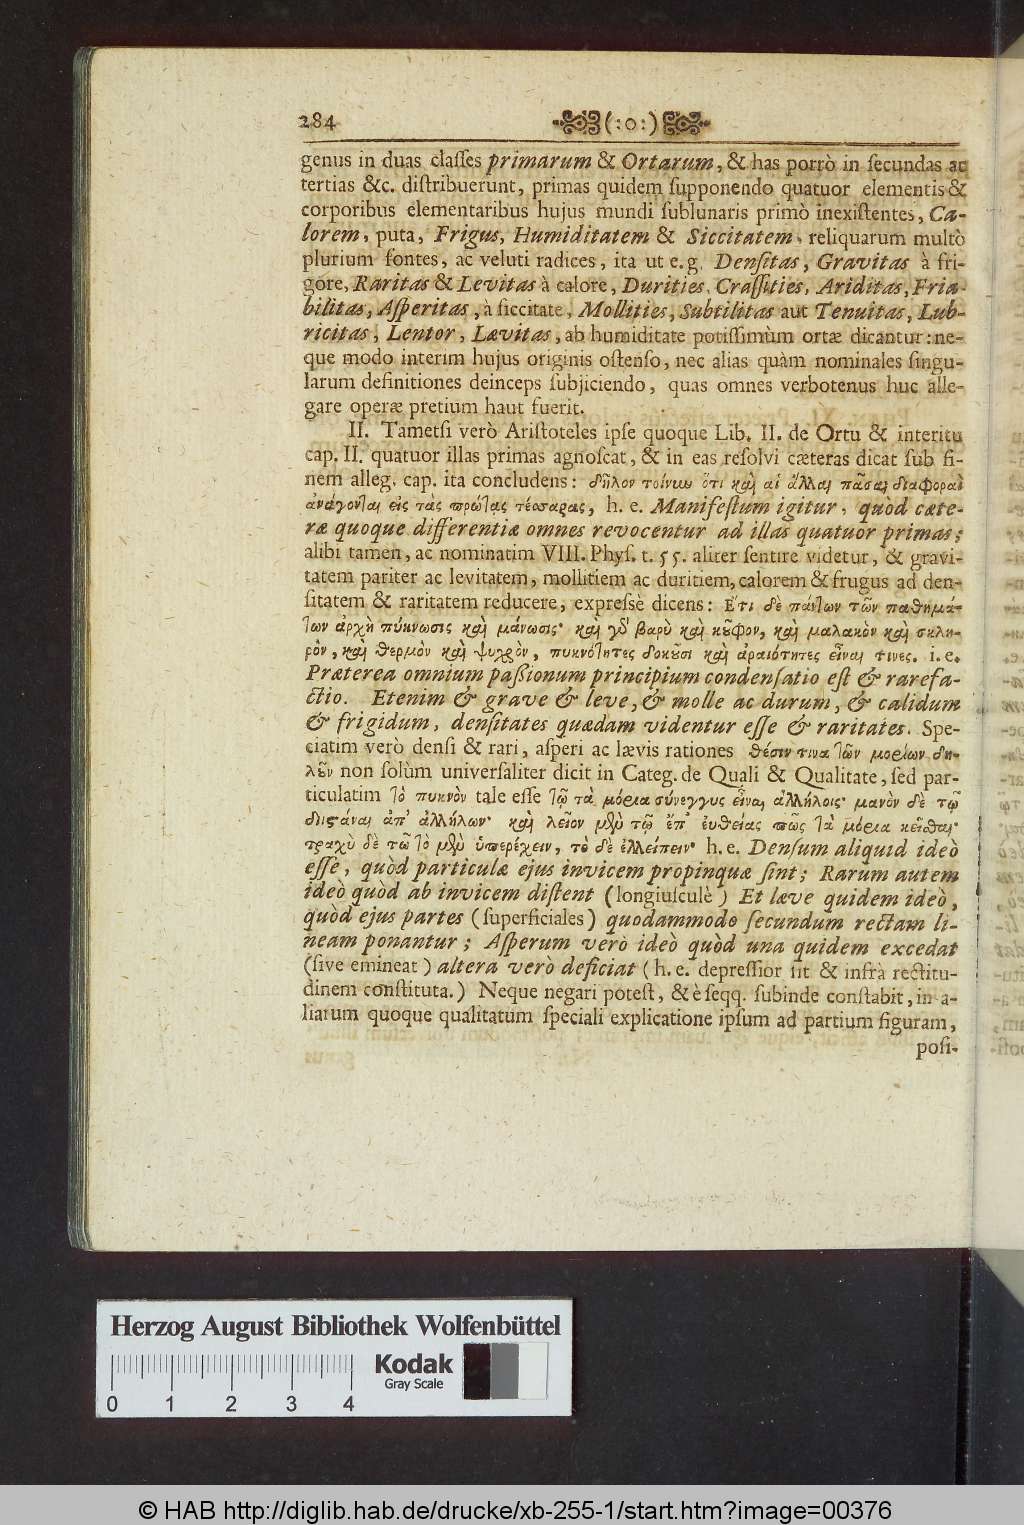 284 (:o:)
genus in duas classes primarum & Ortarum, & has porrò in secundas ac
tertias &c. distribuerunt, primas quidem supponendo quatuor elementis &
corporibus elementaribus hujus mundi sublunaris primò inexistentes, Ca-
lorem, puta, Frigus, Humiditatem & Siccitatem, reliquarum multò
plurium fontes, ac veluti radices, ita ut e.g. Densitas, Gravitas à fri-
gore, Raritas & Levitas à calore, Durities, Crassities, Ariditas, Fria-
bilitas, Asperitas, à siccitate, Mollities, Subtilitas aut Tenuitas, Lub-
ricitas, Lentor, Lævitas, ab humiditate potissimùm ortæ dicantur: ne-
que modo interim hujus originis ostenso, nec alias quàm nominales singu-
larum definitiones deinceps subjiciendo, quas omnes verbotenus huc alle-
gare operæ pretium haut fuerit.
II. Tametsi verò Aristoteles ipse quoque Lib. II. de Ortu & interitu
cap. II. quatuor illas primas agnoscat, & in eas resolvi cæteras dicat sub fi-
nem alleg. cap. ita concludens: δῆλον τοίνυν ὅτι καὶ αἱ ἄλλαι πᾶσαι διαφοραὶ
ἀνάγονται εἰς τὰς πρώτας τέσσαρας, h. e. Manifestum igitur, quòd cæte-
ræ quoque differentiæ omnes revocentur ad illas quatuor primas;
alibi tamen, ac nominatim VIII. Phys. t. 55. aliter sentire videtur, & gravi-
tatem pariter ac levitatem, mollitiem ac duritiem, calorem & frugus ad den-
sitatem & raritatem reducere, expressè dicens: Ἔτι δὲ πάντων τῶν παθημά-
των ἀρχὴ πύκνωσις καὶ μάνωσις· καὶ γὸ βαρὺ καὶ κοῦφον, καὶ μαλακὸν καὶ σκλη-
ρὸν, καὶ θερμὸν καὶ ψυχρὸν, πυκνότητες δοκοῦσι καὶ ἀραιότητες εἶναι τινες. i. e.
Præterea omnium passionum principium condensatio est & rarefa-
ctio. Etenim & grave & leve, & molle ac durum, & calidum
& frigidum, densitates quædam videntur esse & raritates. Spe-
ciatim verò densi & rari, asperi ac lævis rationes θέσιν τινα τῶν μορίων δη-
λοῦν non solùm universaliter dicit in Categ. de Quali & Qualitate, sed par-
ticulatim τὸ πυκνὸν tale esse τῷ τὰ μόρια σύνεγγυς εἶναι ἀλλήλοις· μανὸν δὲ τῷ
διιστάναι ἀπ' ἀλλήλων· καὶ λεῖον μὲν τῷ ἐπ' εὐθείας πῶς τὰ μόρια κεῖσθαι·
τραχὺ δὲ τῷ τὸ μὲν ὑπερέχειν, τὸ δὲ ἐλλείπειν· h. e. Densum aliquid ideò
esse, quòd particulæ ejus invicem propinquæ sint; Rarum autem
ideò quòd ab invicem distent (longiusculè) Et læve quidem ideò,
quòd ejus partes (superficiales) quodammodo secundum rectam li-
neam ponantur; Asperum verò ideò quòd una quidem excedat
(sive emineat) altera verò deficiat (h. e. depressior sit & infrà rectitu-
dinem constituta.) Neque negari potest, & è seqq. subinde constabit, in a-
liarum quoque qualitatum speciali explicatione ipsum ad partium figuram,
posi-
Herzog August Bibliothek Wolfenbüttel
Kodak
Gray Scale
0 1 2 3 4
© HAB http://diglib.hab.de/drucke/xb-255-1/start.htm?image=00376